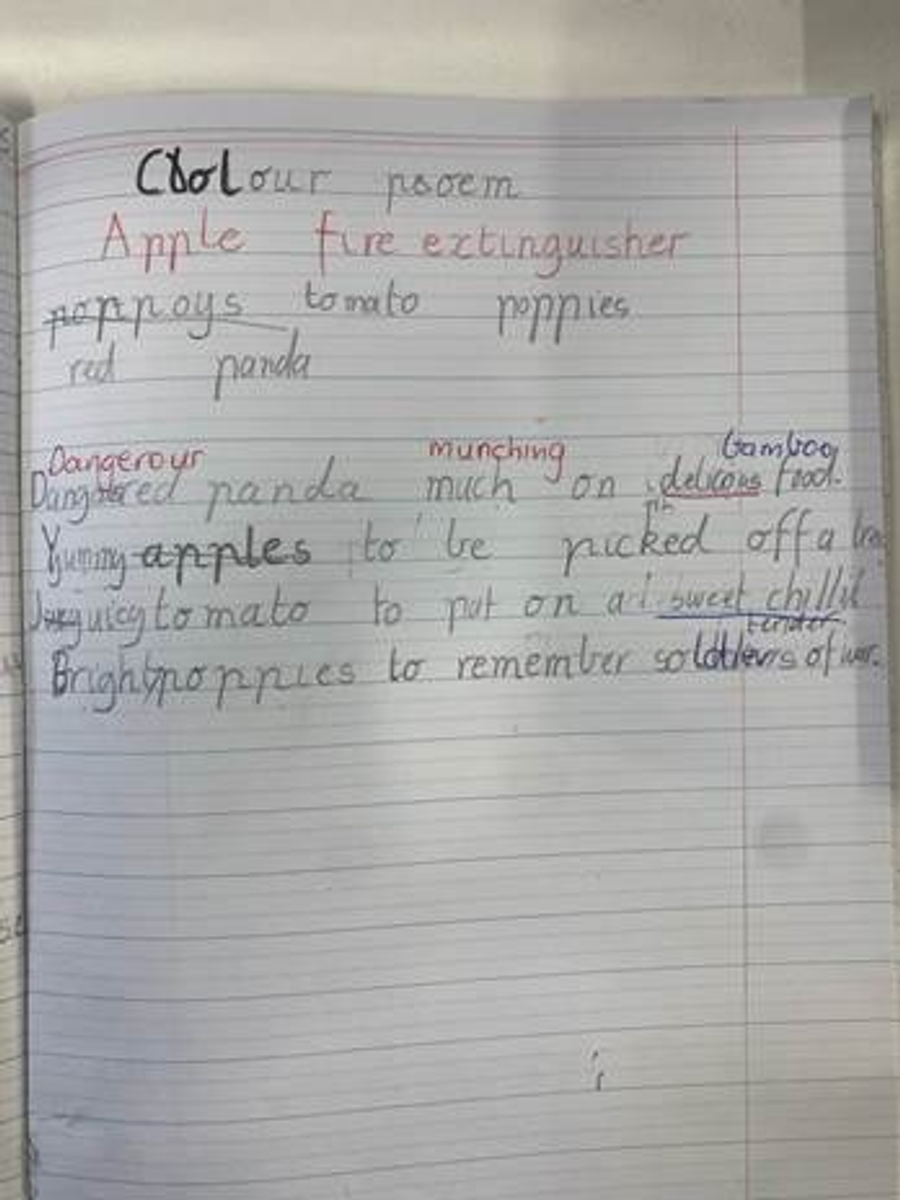 Colour poem
Apple fire extinguisher
poppoys tomato poppies
red panda
Dangerour munching bamboo
red panda much on delicous food.
Yummy apples to be picked off a
guicy tomato to put on a sweet chilli
tender
Bright poppies to remember soldiers of war.